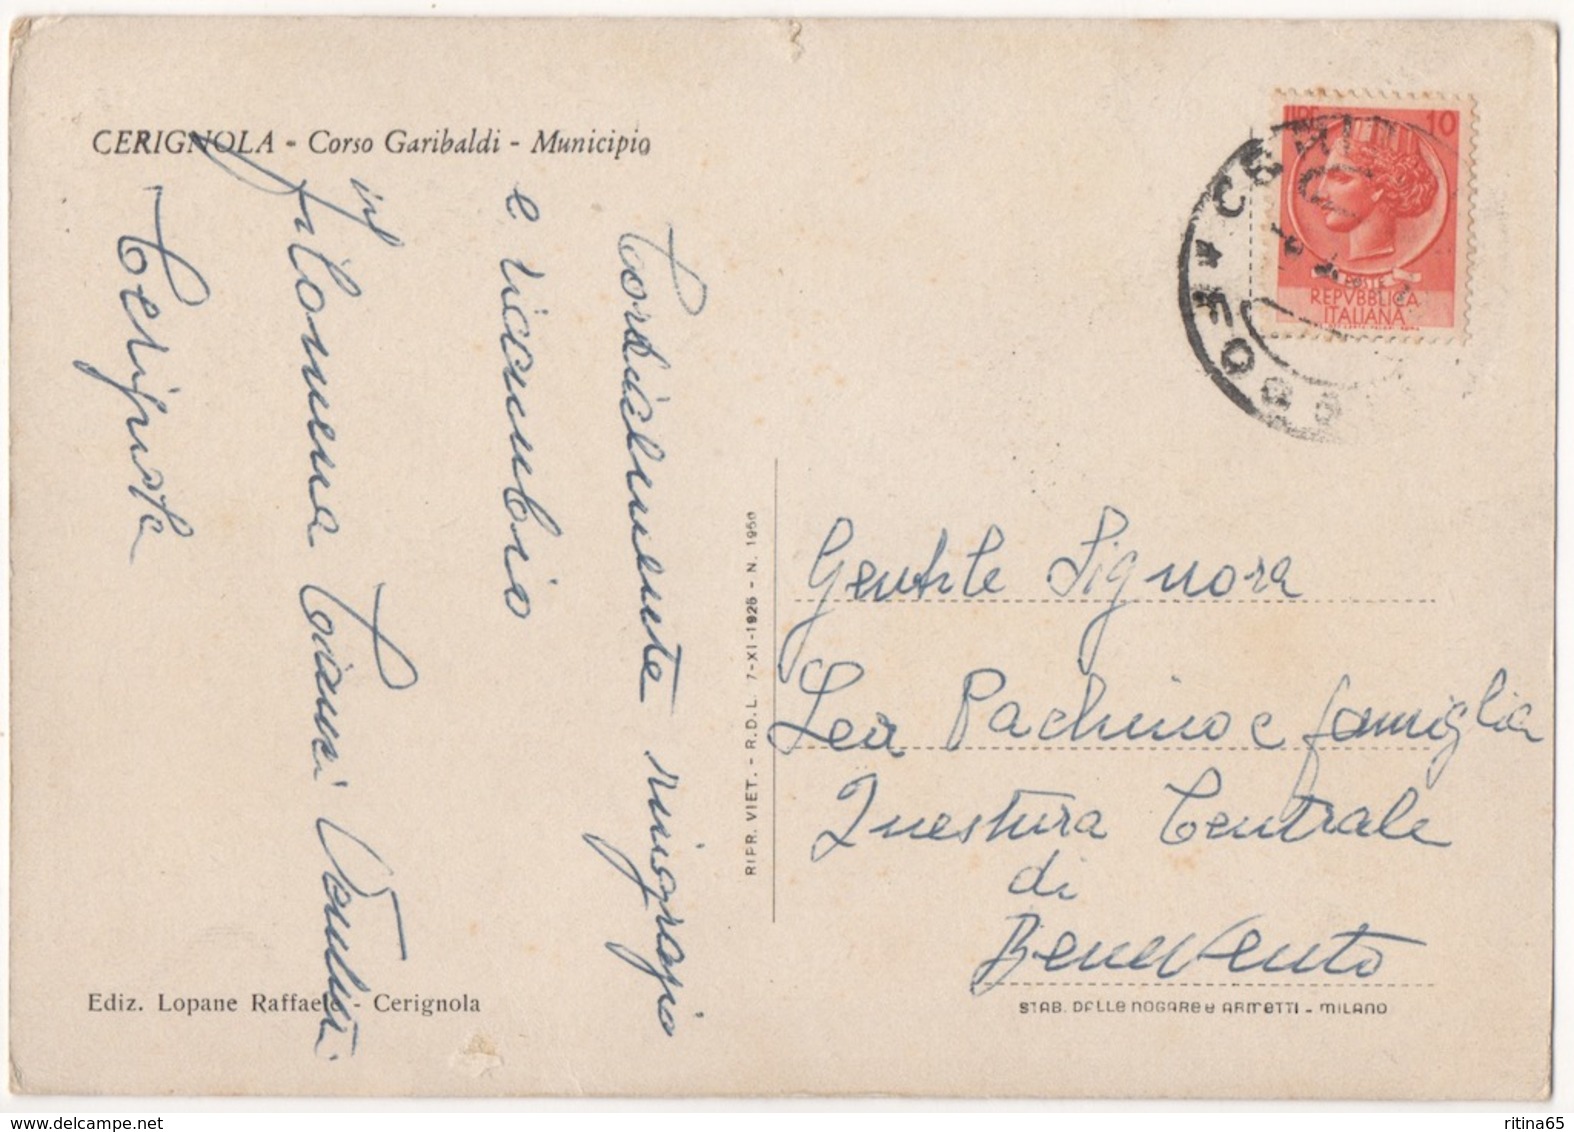 CERIGNOLA - Corso Garibaldi - Municipio
Cordialmente ringrazio
e ricambio
Filomena
in
Ediz. Lopane Raffaele - Cerignola
RIPR. VIET. - R.D.L. 7-XI-1925 - N. 1950
LIRE 10
POSTE
REPVBBLICA
ITALIANA
Gentile Signora
Lea Pachino e famiglia
Questura Centrale
di
Benevento
STAB. DALLE NOGARE e ARMETTI - MILANO
ritina65